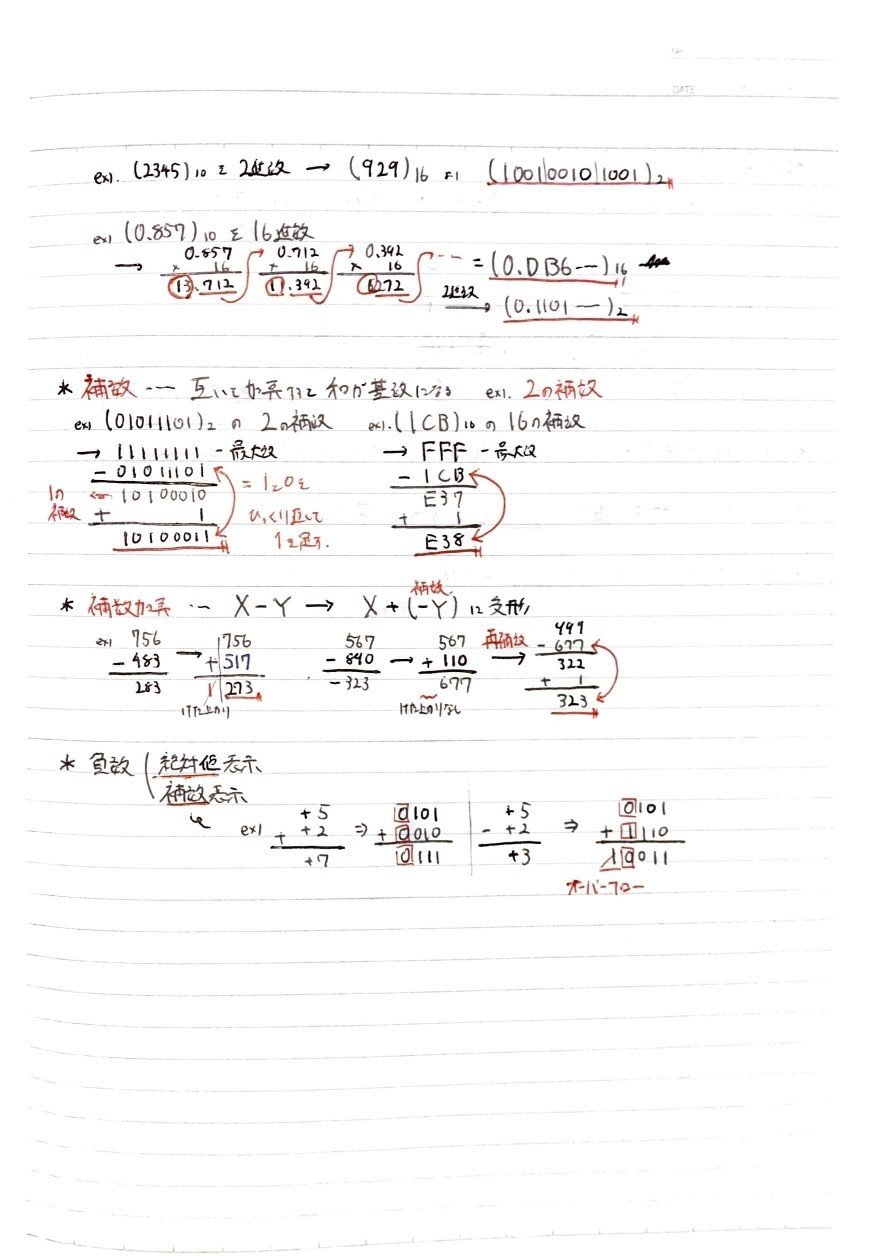 No
DATE
ex). (2345)10 を 2進数 → (929)16 より (1001|0010|1001)2
ex) (0.857)10 を 16進数
0.857 0.712 0.392
→ × 16 × 16 × 16 ... = (0.DB6…)16
13.712 11.392 6.272 2進数→ (0.1101…)2
* 補数 … 互いに加算すると和が基数になる ex). 2の補数
ex) (01011101)2 の 2の補数 ex). (1CB)16 の 16の補数
→ 11111111 - 最大数 → FFF - 最大数
- 01011101 - 1CB
1の補数 ← 10100010 = 1と0を E37
+ 1 ひっくり返して + 1
10100011 1を足す. E38
* 補数加算 … X-Y → X+(-Y) に変形
補数
ex) 756 → 756 567 → 567 再補数 → 999
- 483 + 517 - 890 + 110 - 677
283 1 273 - 323 677 322
けた上がり けた上がりなし + 1
323
* 負数 ( 絶対値表示
補数表示
ex) +5 ⇒ 0101 +5 ⇒ 0101
+ +2 + 0010 - +2 + 1110
+7 0111 +3 10011
オーバーフロー